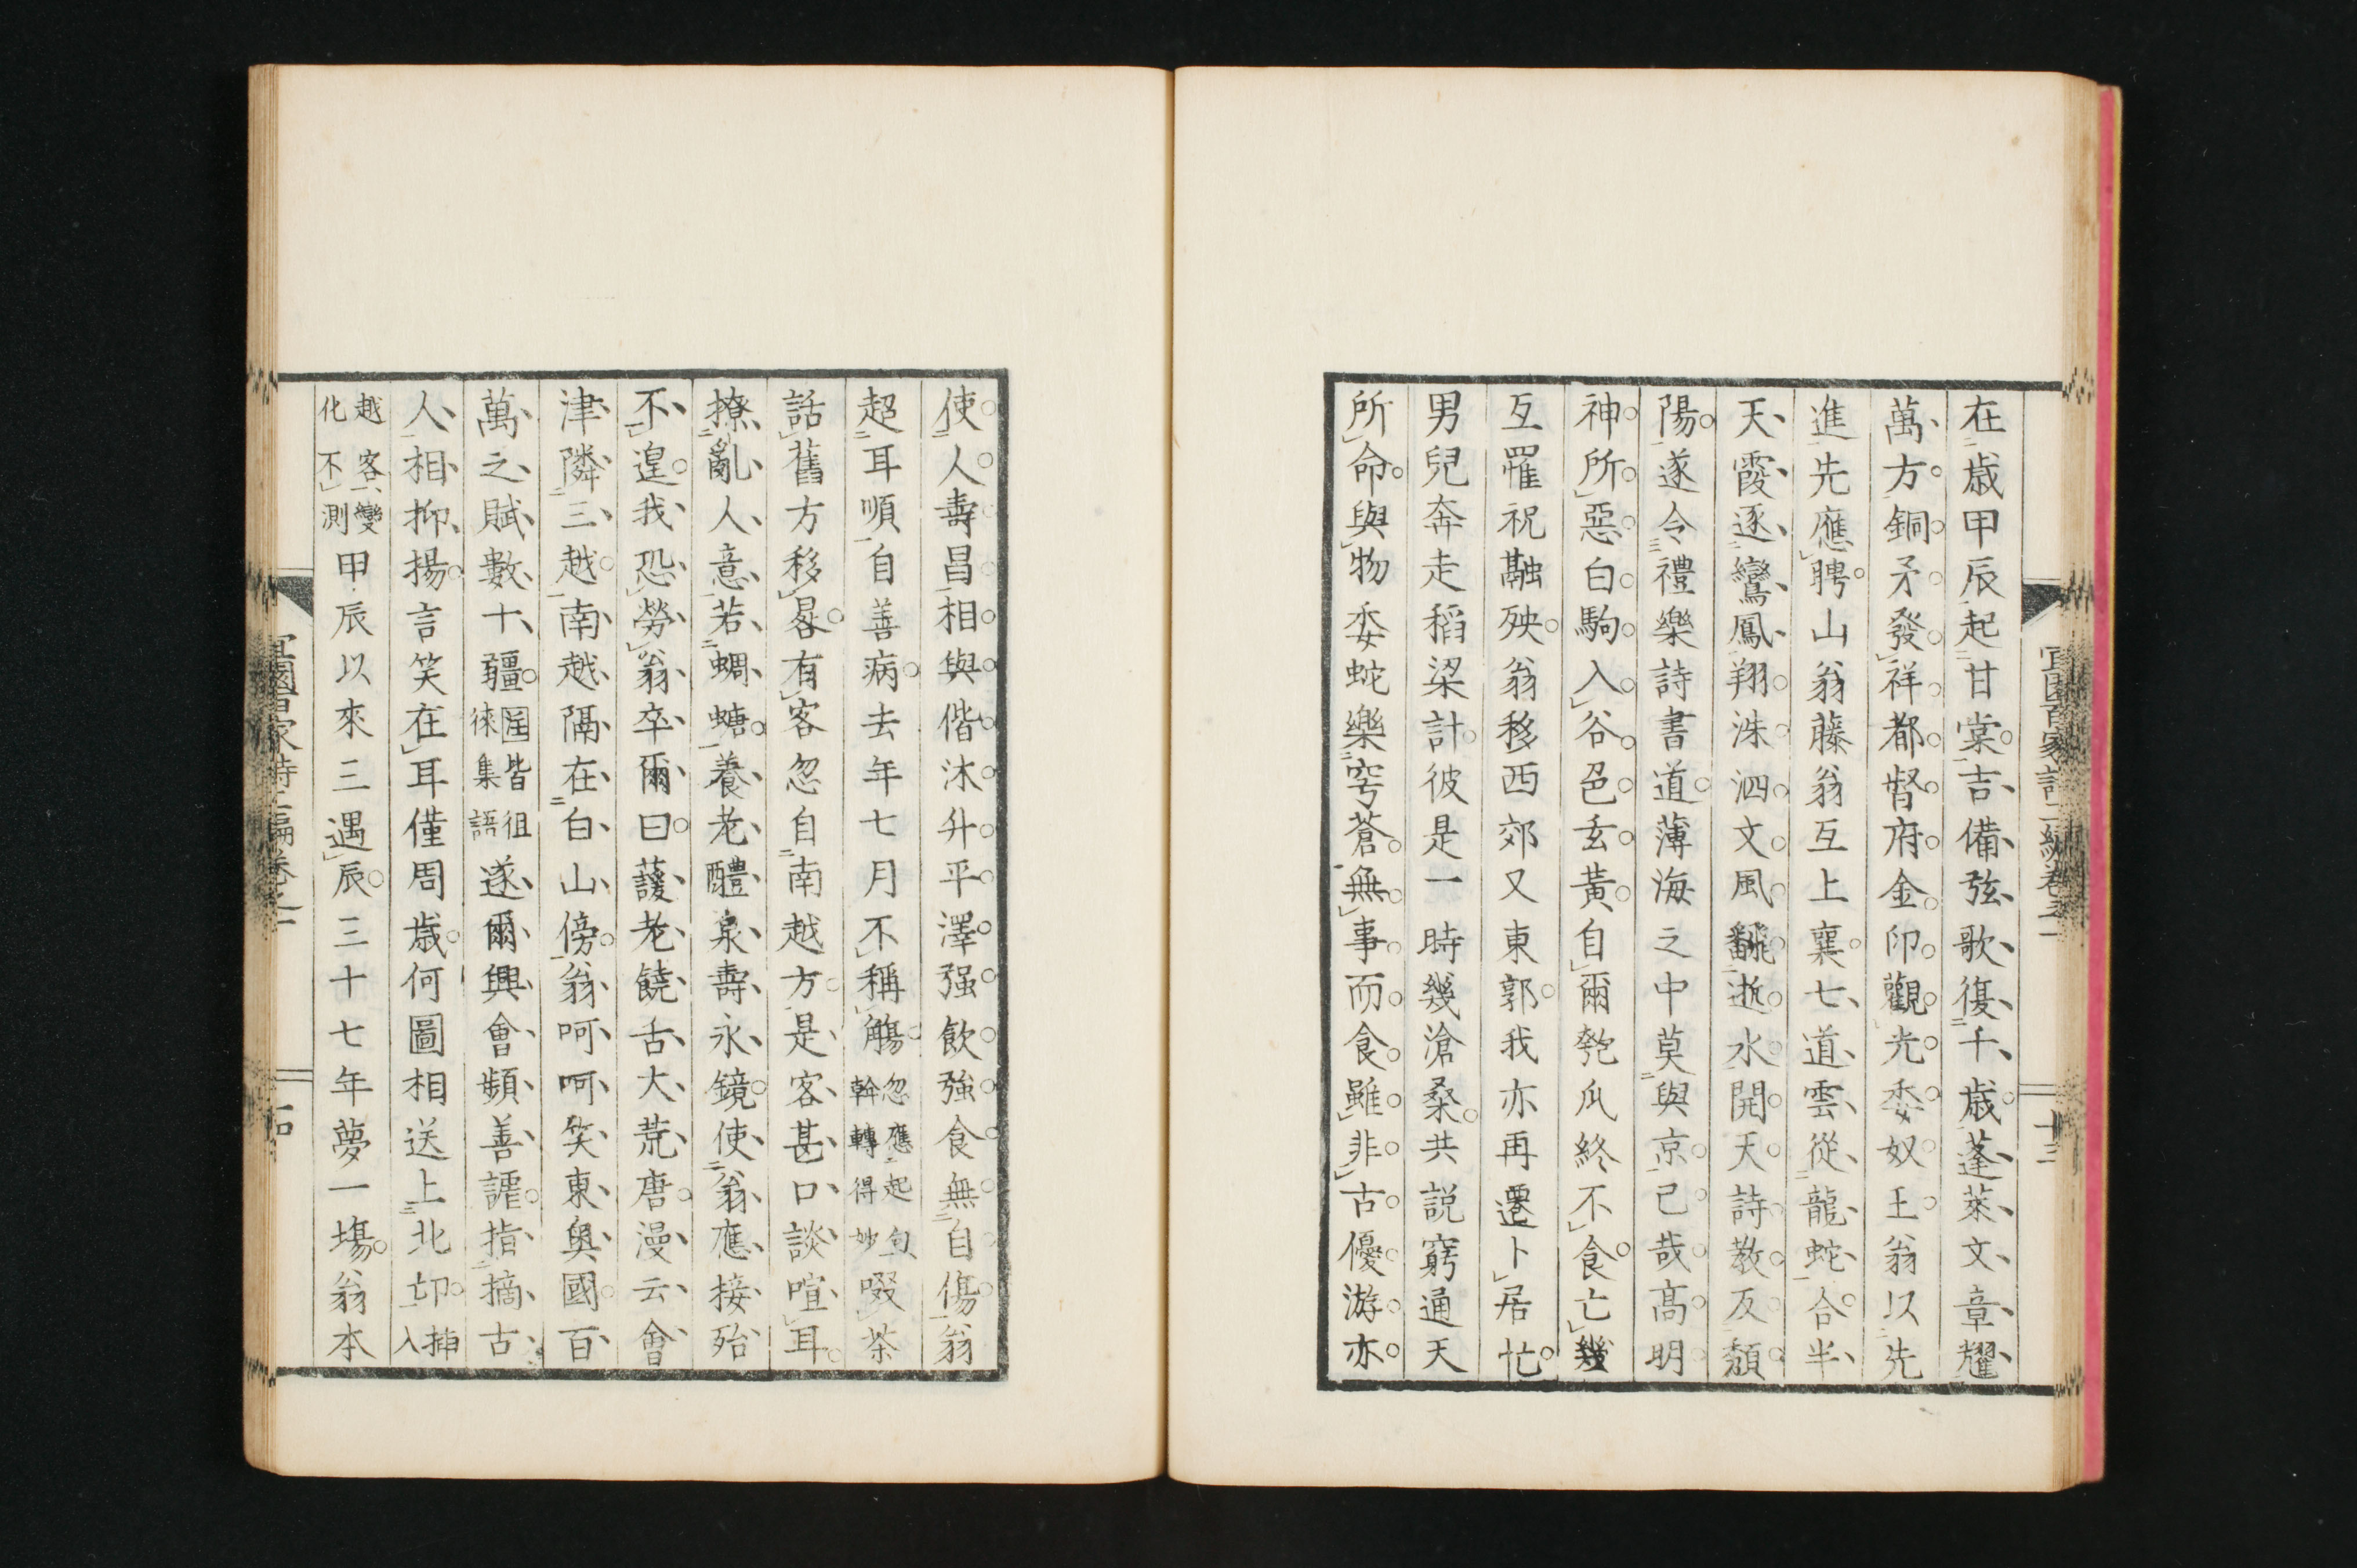 在歳甲辰起甘棠吉備弦歌復千歳蓬萊文章耀
萬方銅矛發祥都督府金印觀光委奴王翁以先
進先應聘山翁藤翁互上襄七道雲從龍蛇合半
天霞逐鸞鳳翔洙泗文風翻逝水開天詩教反頽
陽遂令禮樂詩書道薄海之中莫與京已哉高明
神所惡白駒入谷邑玄黃自爾匏瓜終不食亡幾
互罹祝融殃翁移西郊又東郭我亦再遷卜居忙
男兒奔走稻梁計彼是一時幾滄桑共説窮通天
所命與物委蛇樂穹蒼無事而食雖非古優游亦
使人壽昌相與偕沐升平澤强飲強食無自傷翁
超耳順自善病去年七月不稱觴忽應起句斡轉得妙啜茶
話舊方移晷有客忽自南越方是客甚口談喧耳
撩亂人意若蜩螗養老醴泉壽永鏡使翁應接殆
不遑我恐勞翁卒爾曰護老饒舌大荒唐漫云會
津隣三越南越隔在白山傍翁呵呵笑東奥國百
萬之賦數十疆匡皆徂徠集語遂爾興會頻善謔指摘古
人相抑揚言笑在耳僅周歳何圖相送上北邙插入
越客變化不測甲辰以來三遇辰三十七年夢一塲翁本